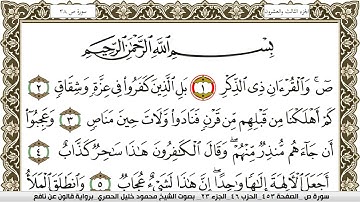 الجزء الثالث والعشرون سورة ص ٣٨
بِسْمِ اللَّهِ الرَّحْمَٰنِ الرَّحِيمِ
صٓ ۚ وَالْقُرْءَانِ ذِي الذِّكْرِ ١ بَلِ الَّذِينَ كَفَرُوا۟ فِي عِزَّةٍ وَشِقَاقٍ ٢
كَمْ أَهْلَكْنَا مِن قَبْلِهِم مِّن قَرْنٍ فَنَادَوا۟ وَّلَاتَ حِينَ مَنَاصٍ ٣ وَعَجِبُوٓا۟
أَن جَآءَهُم مُّنذِرٌ مِّنْهُمْ ۖ وَقَالَ الْكَٰفِرُونَ هَٰذَا سَٰحِرٌ كَذَّابٌ ٤
أَجَعَلَ الْءَالِهَةَ إِلَٰهًا وَٰحِدًا ۖ إِنَّ هَٰذَا لَشَيْءٌ عُجَابٌ ٥ وَانطَلَقَ الْمَلَأُ
سورة ص الصفحة ٤٥٣ الحزب ٤٦ الجزء ٢٣ بصوت الشيخ محمود خليل الحصري برواية قالون عن نافع